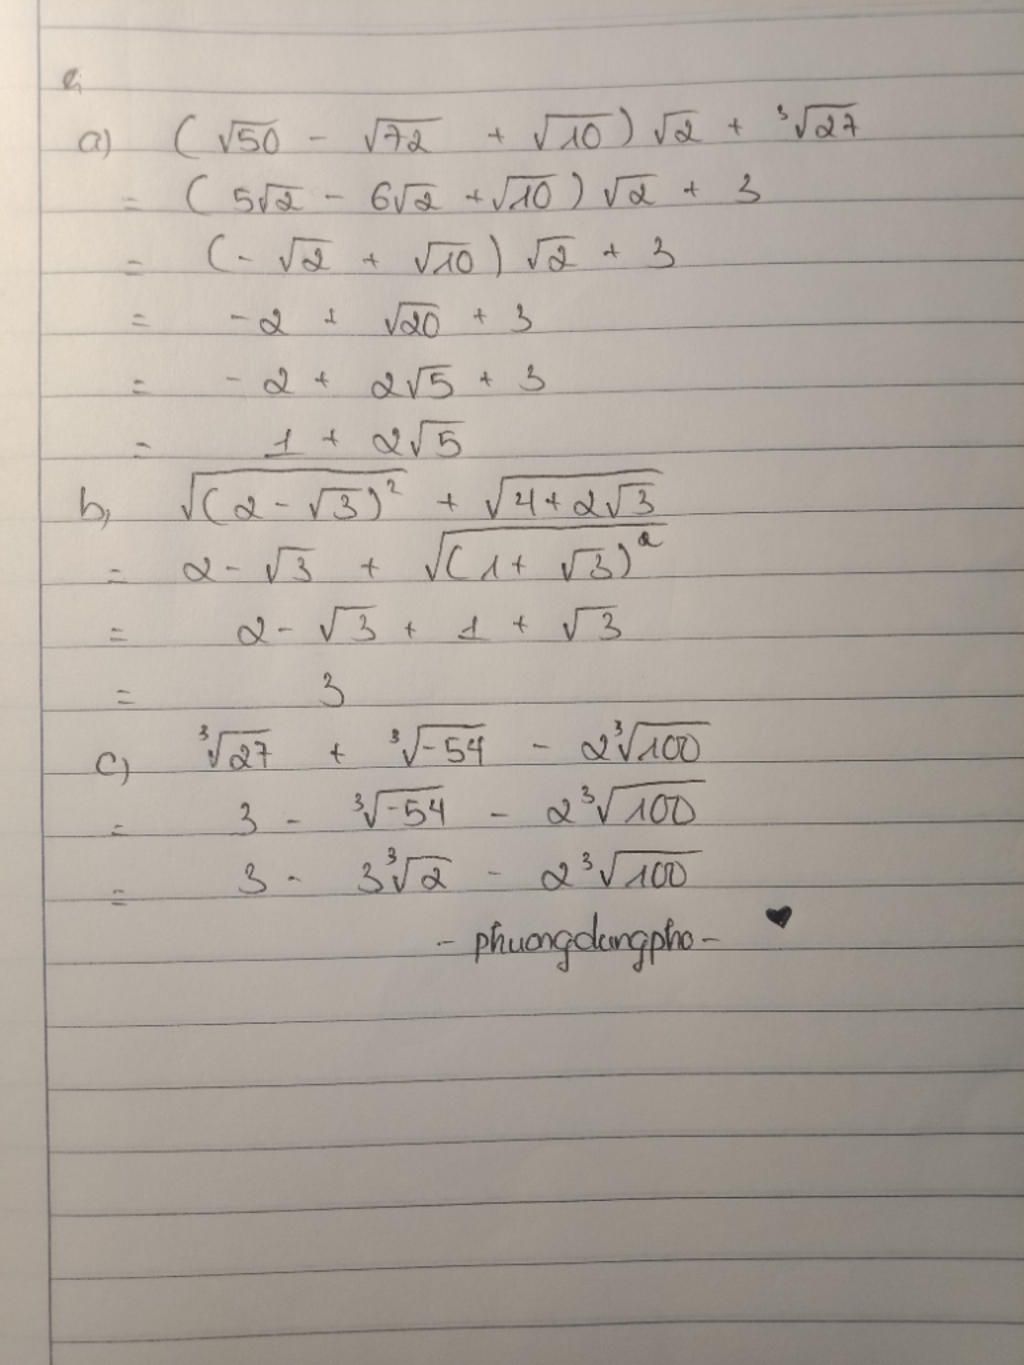 a) (√50 - √72 + √10) √2 + ³√27
= (5√2 - 6√2 + √10) √2 + 3
= (- √2 + √10) √2 + 3
= -2 + √20 + 3
= -2 + 2√5 + 3
= 1 + 2√5
b, √(2 - √3)² + √4+2√3
= 2 - √3 + √(1 + √3)²
= 2 - √3 + 1 + √3
= 3
c) ³√27 + ³√-54 - 2³√100
= 3 - ³√-54 - 2³√100
= 3 - 3³√2 - 2³√100
- phuongdungpho - ♥